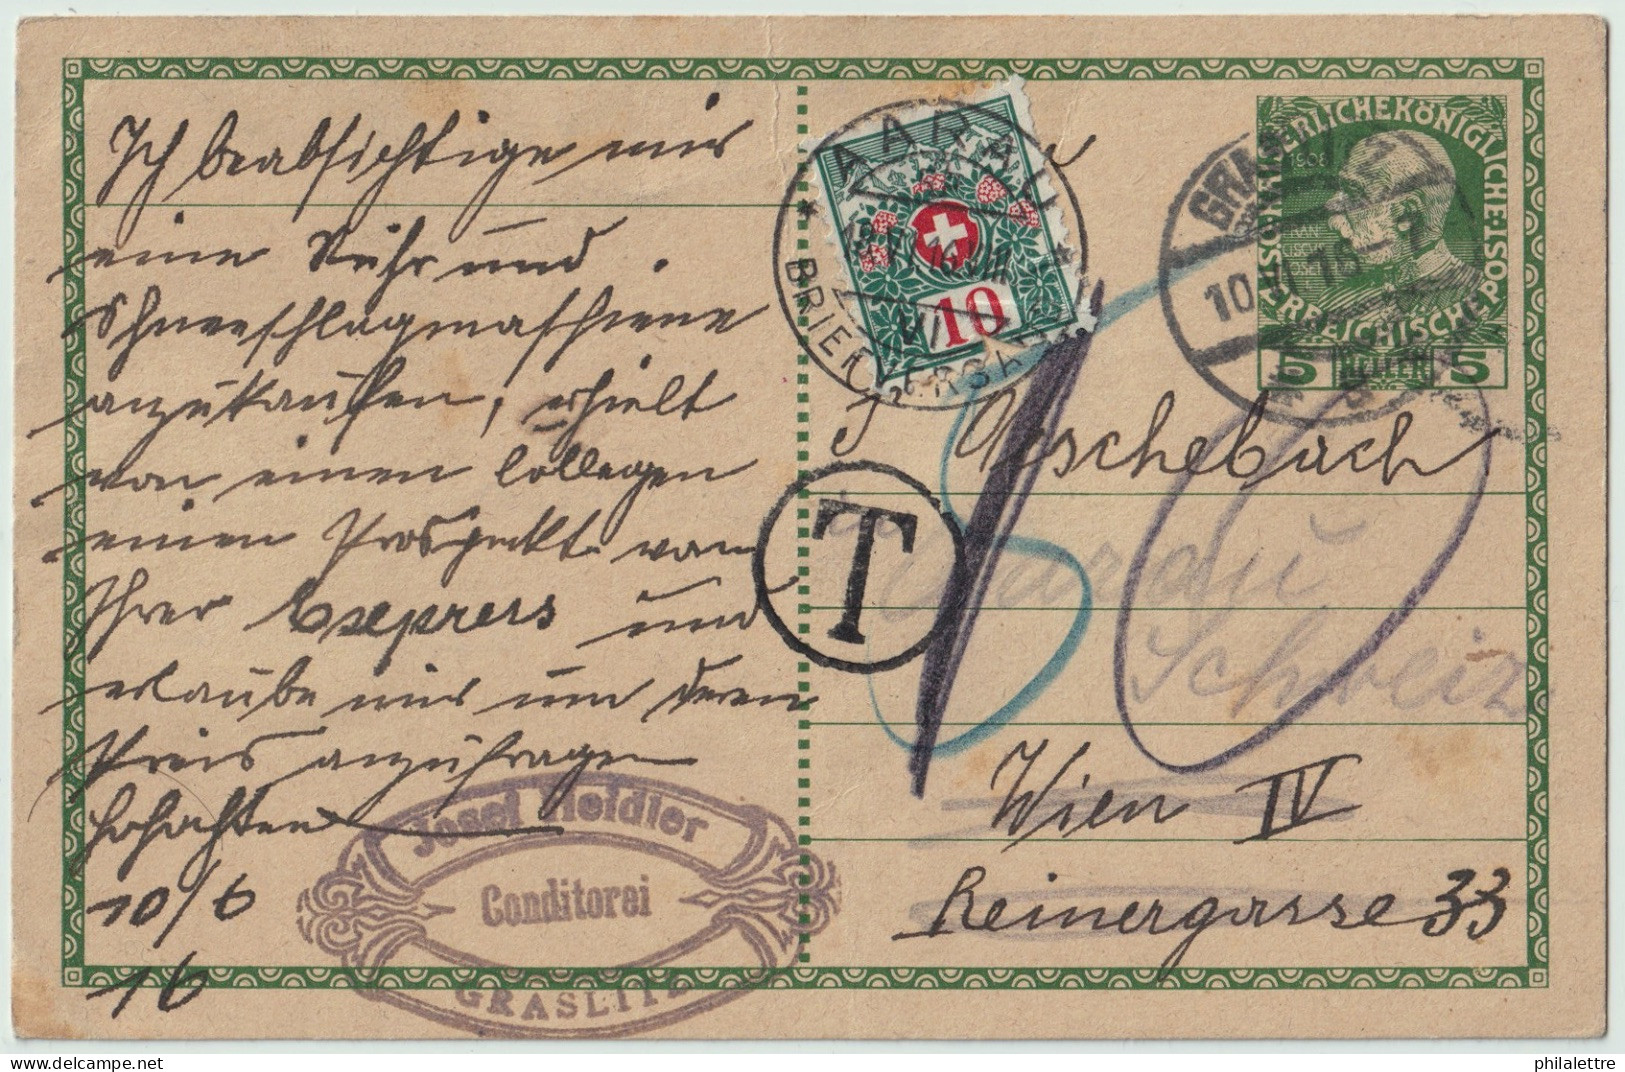 Ich beabsichtige mir
eine Rühr und
Schneeschlagmaschiene
anzukaufen, erhielt
von einen Collegen
einen Prospekt von
Ihrer Expreis und
erlaube mir um deren
Preis anzufragen
Hochachtend
10/6
16
Josef Heidler
Conditorei
GRASLITZ
AARAU
BRIEF
VI
10
T
KAISERLICHE KÖNIGLICHE ÖSTERREICHISCHE POST
1908
5 HELLER 5
GRASLITZ
10 VI 16 - 7
J. Aeschebach
Aarau
Schweiz
Wien IV
Reinergasse 33
www.delcampe.net
philalettre